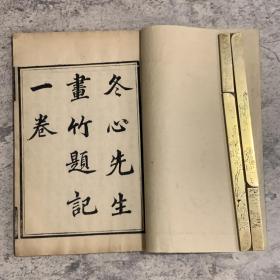 冬心先生
畫竹題記
一卷